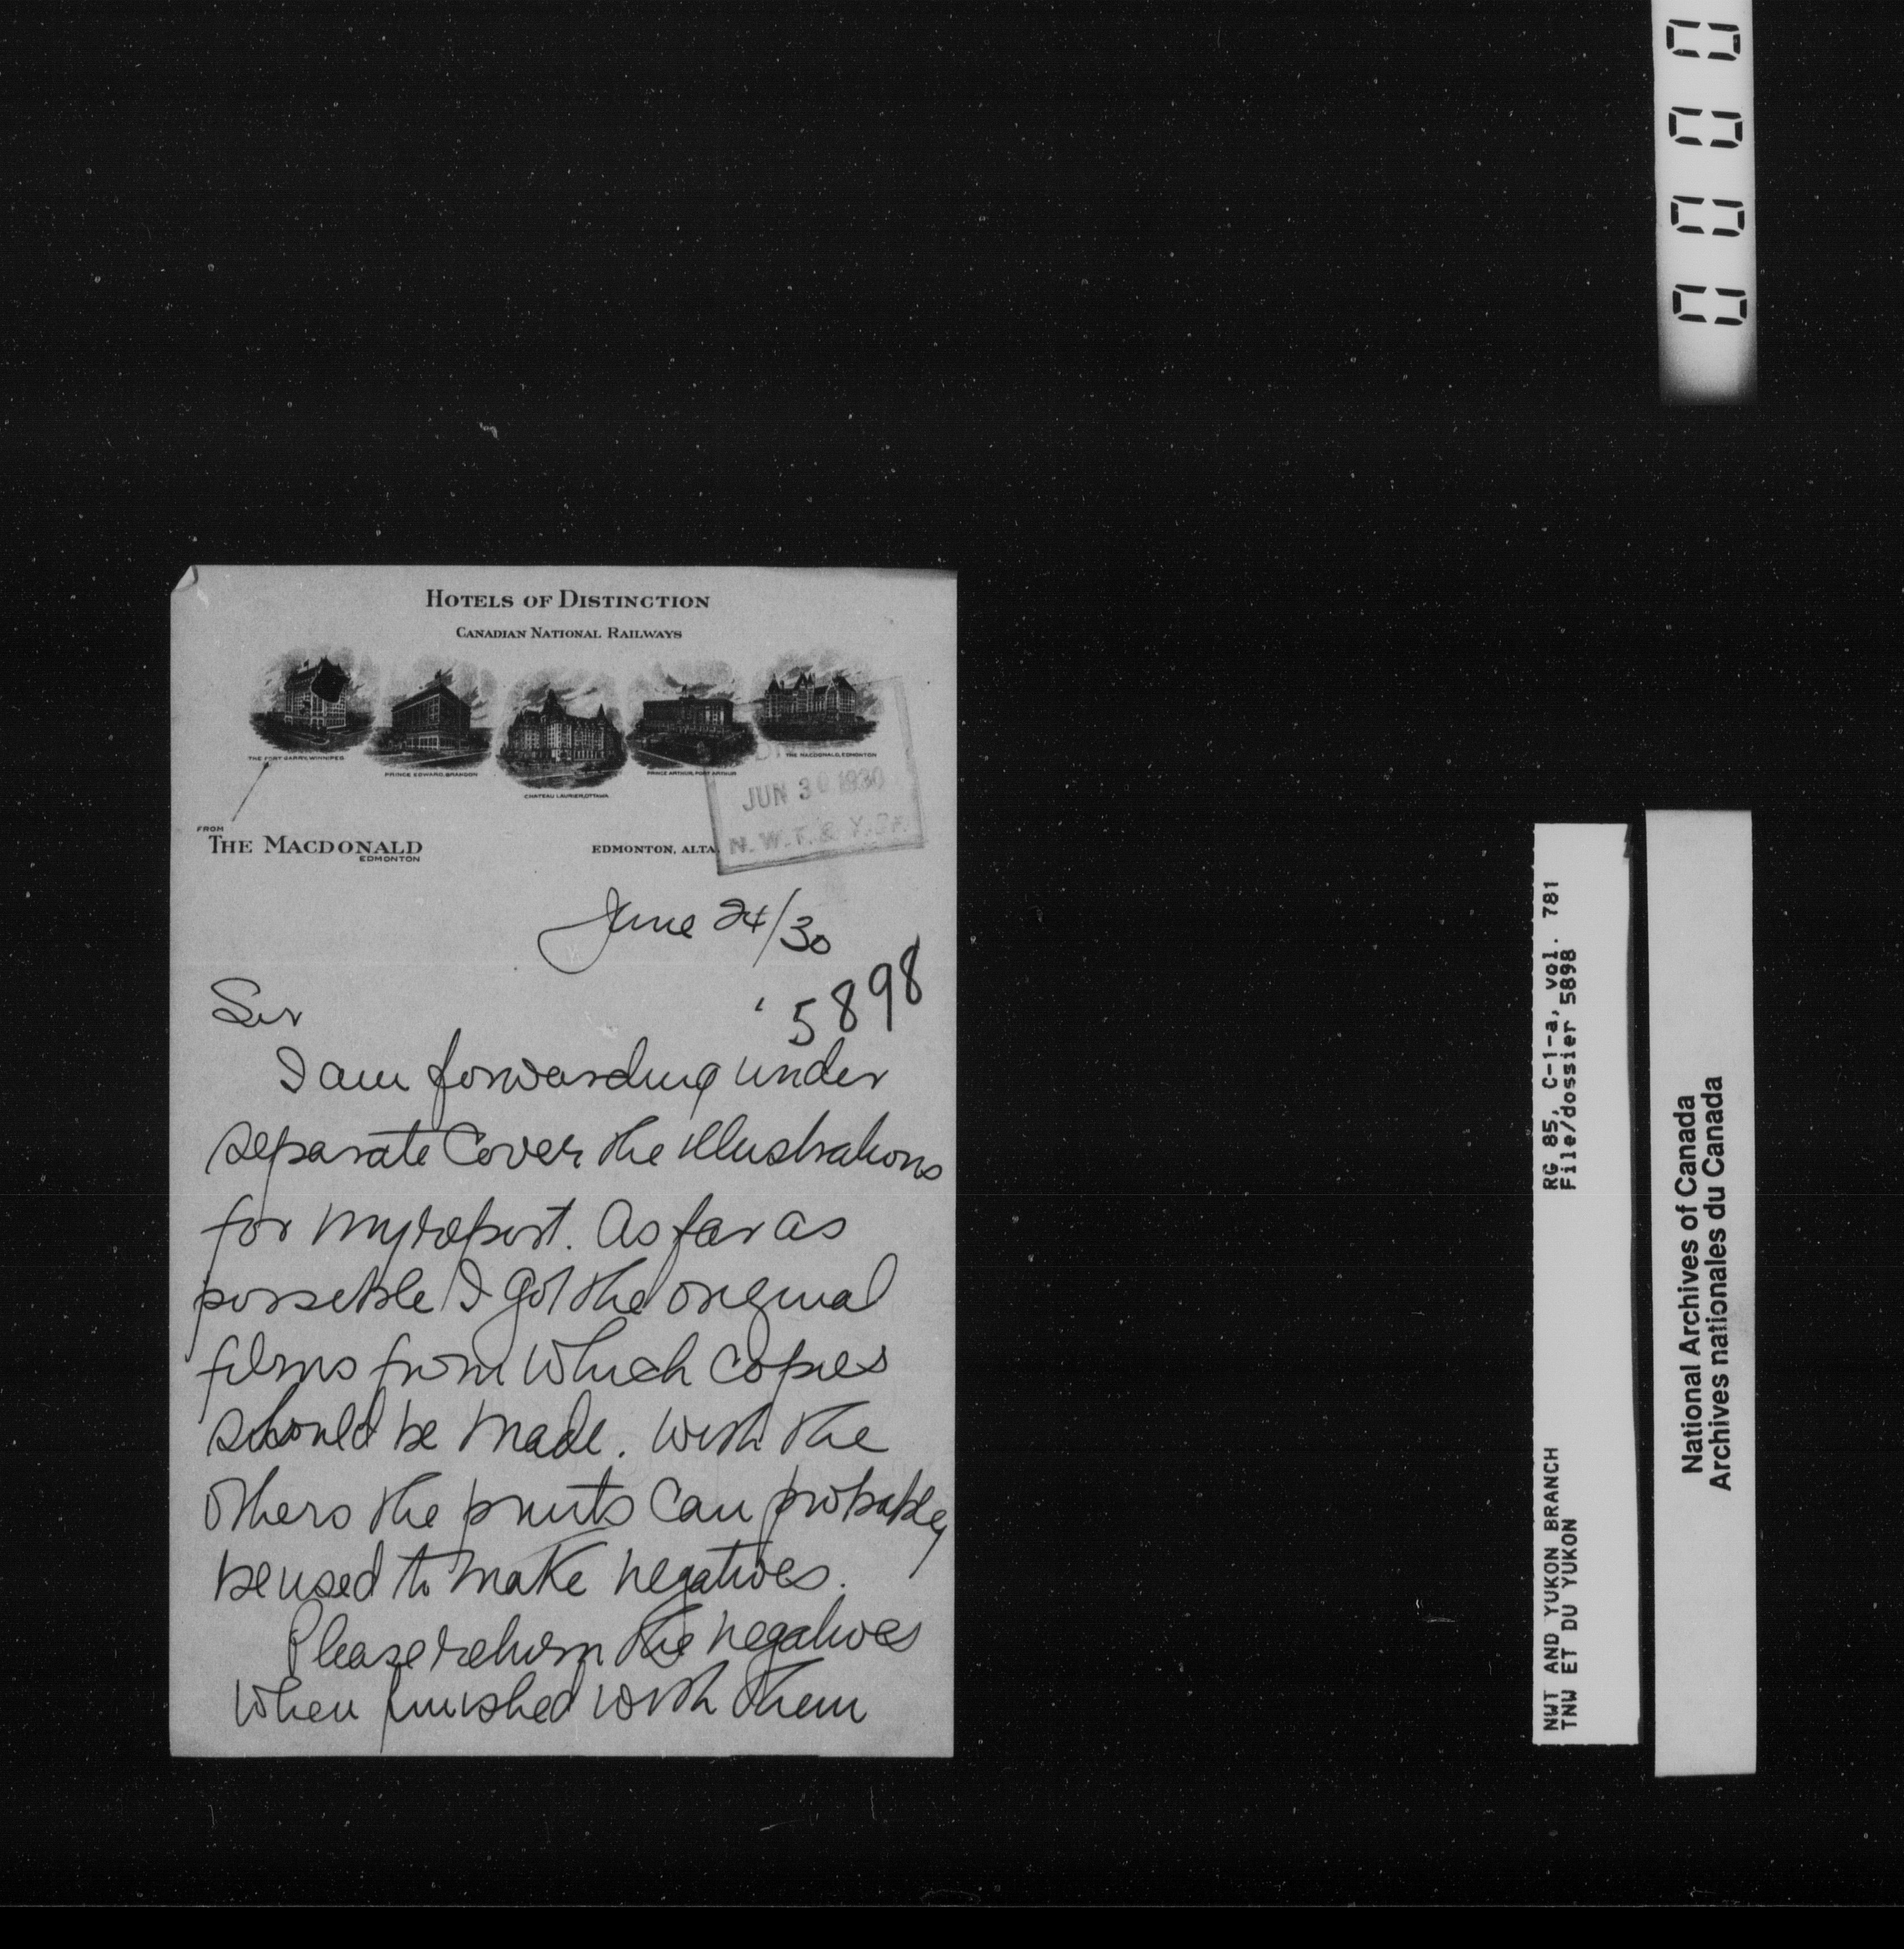 HOTELS OF DISTINCTION
CANADIAN NATIONAL RAILWAYS
THE FORT GARRY, WINNIPEG
PRINCE EDWARD, BRANDON
CHATEAU LAURIER, OTTAWA
PRINCE ARTHUR, PORT ARTHUR
THE MACDONALD, EDMONTON
JUN 30 1930
N.W.T. & Y. Br.
FROM
THE MACDONALD
EDMONTON
EDMONTON, ALTA.
June 24/30
5898
Sir
I am forwarding under
separate Cover the illustrations
for my report. As far as
possible I got the original
films from which copies
should be made. With the
others the prints can probably
be used to make negatives.
Please return the negatives
when finished with them
0000
RG 85, C-1-a, vol. 781
File/dossier 5898
NWT AND YUKON BRANCH
TNW ET DU YUKON
National Archives of Canada
Archives nationales du Canada